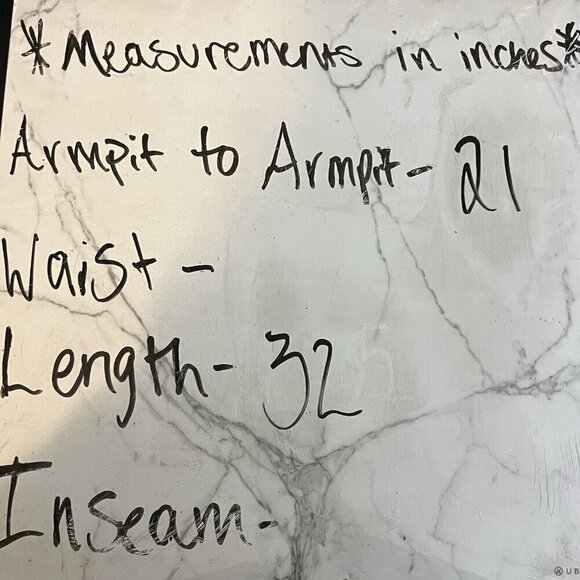 *Measurements in inches*
Armpit to Armpit- 21
Waist -
Length- 32
Inseam-